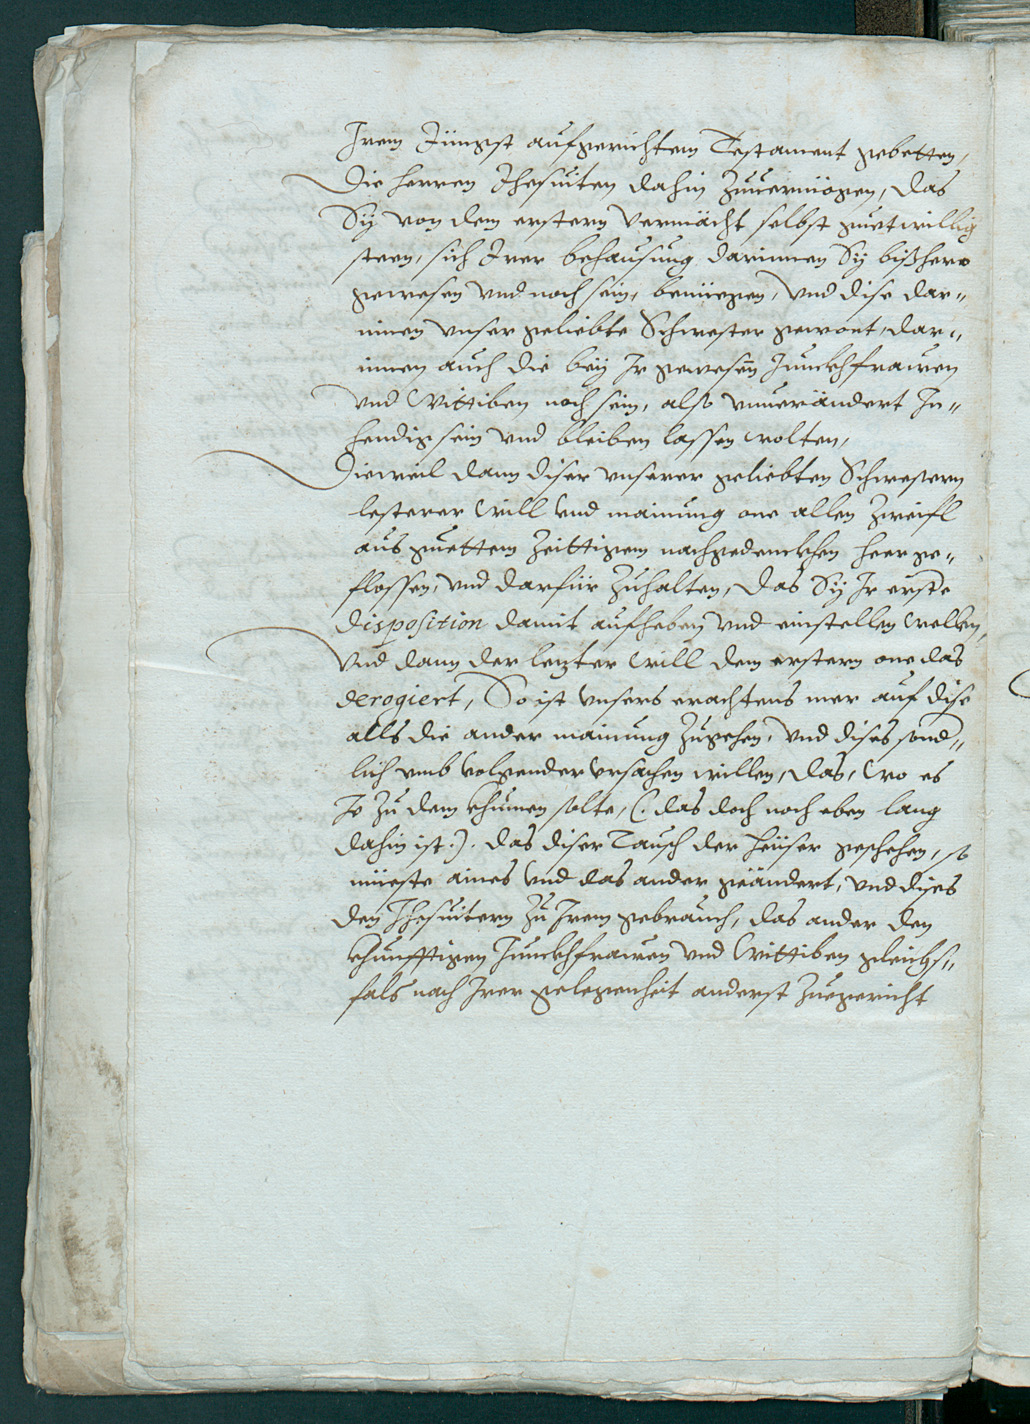 Irem Jüngst aufgerichtem Testament gebetten,
die herren Jhesuiten dahin zuuermögen, das
Sÿ von dem erstern Vermächt selbst guetwillig
steen, sich Irer behausung darinnen Sÿ bißhero
gewesen vnd noch sein, benüegen, vnd dise dar„
innen vnser geliebte Schwester gewont, dar„
innen auch die beÿ Ir gewesen Junckhfrawen
vnd Wittiben noch sein, also vnuerändert In„
hendig sein vnd bleiben lassen wolten,
Dieweil dann diser vnserer geliebten Schwestern
lesterer Will vnd mainung one allen Zweifl
aus guettem zeittigem nachgedenckhen heer ge„
flossen, vnd darfür zuhalten, das Sÿ Ir erste
disposition damit aufheben vnd einstellen wellen,
Vnd dann der letzter Will dem erstern one das
derogiert, So ist vnsers erachtens mer auf dise
alls die ander mainung zugehen, vnd dises sond„
lich vmb volgender vrsachen willen, das, Wo es
Je zu dem khumen solte, (: das doch noch eben lang
dahin ist :). das diser Tausch der heüser geschehen, so
müeste aines vnd das ander geändert, vnd dises
den Jhesuitern zu Irem gebrauch, das ander den
khunfftigen Junckhfrawen vnd Wittiben gleichs„
fals nach Irer gelegenheit anderst zuegericht